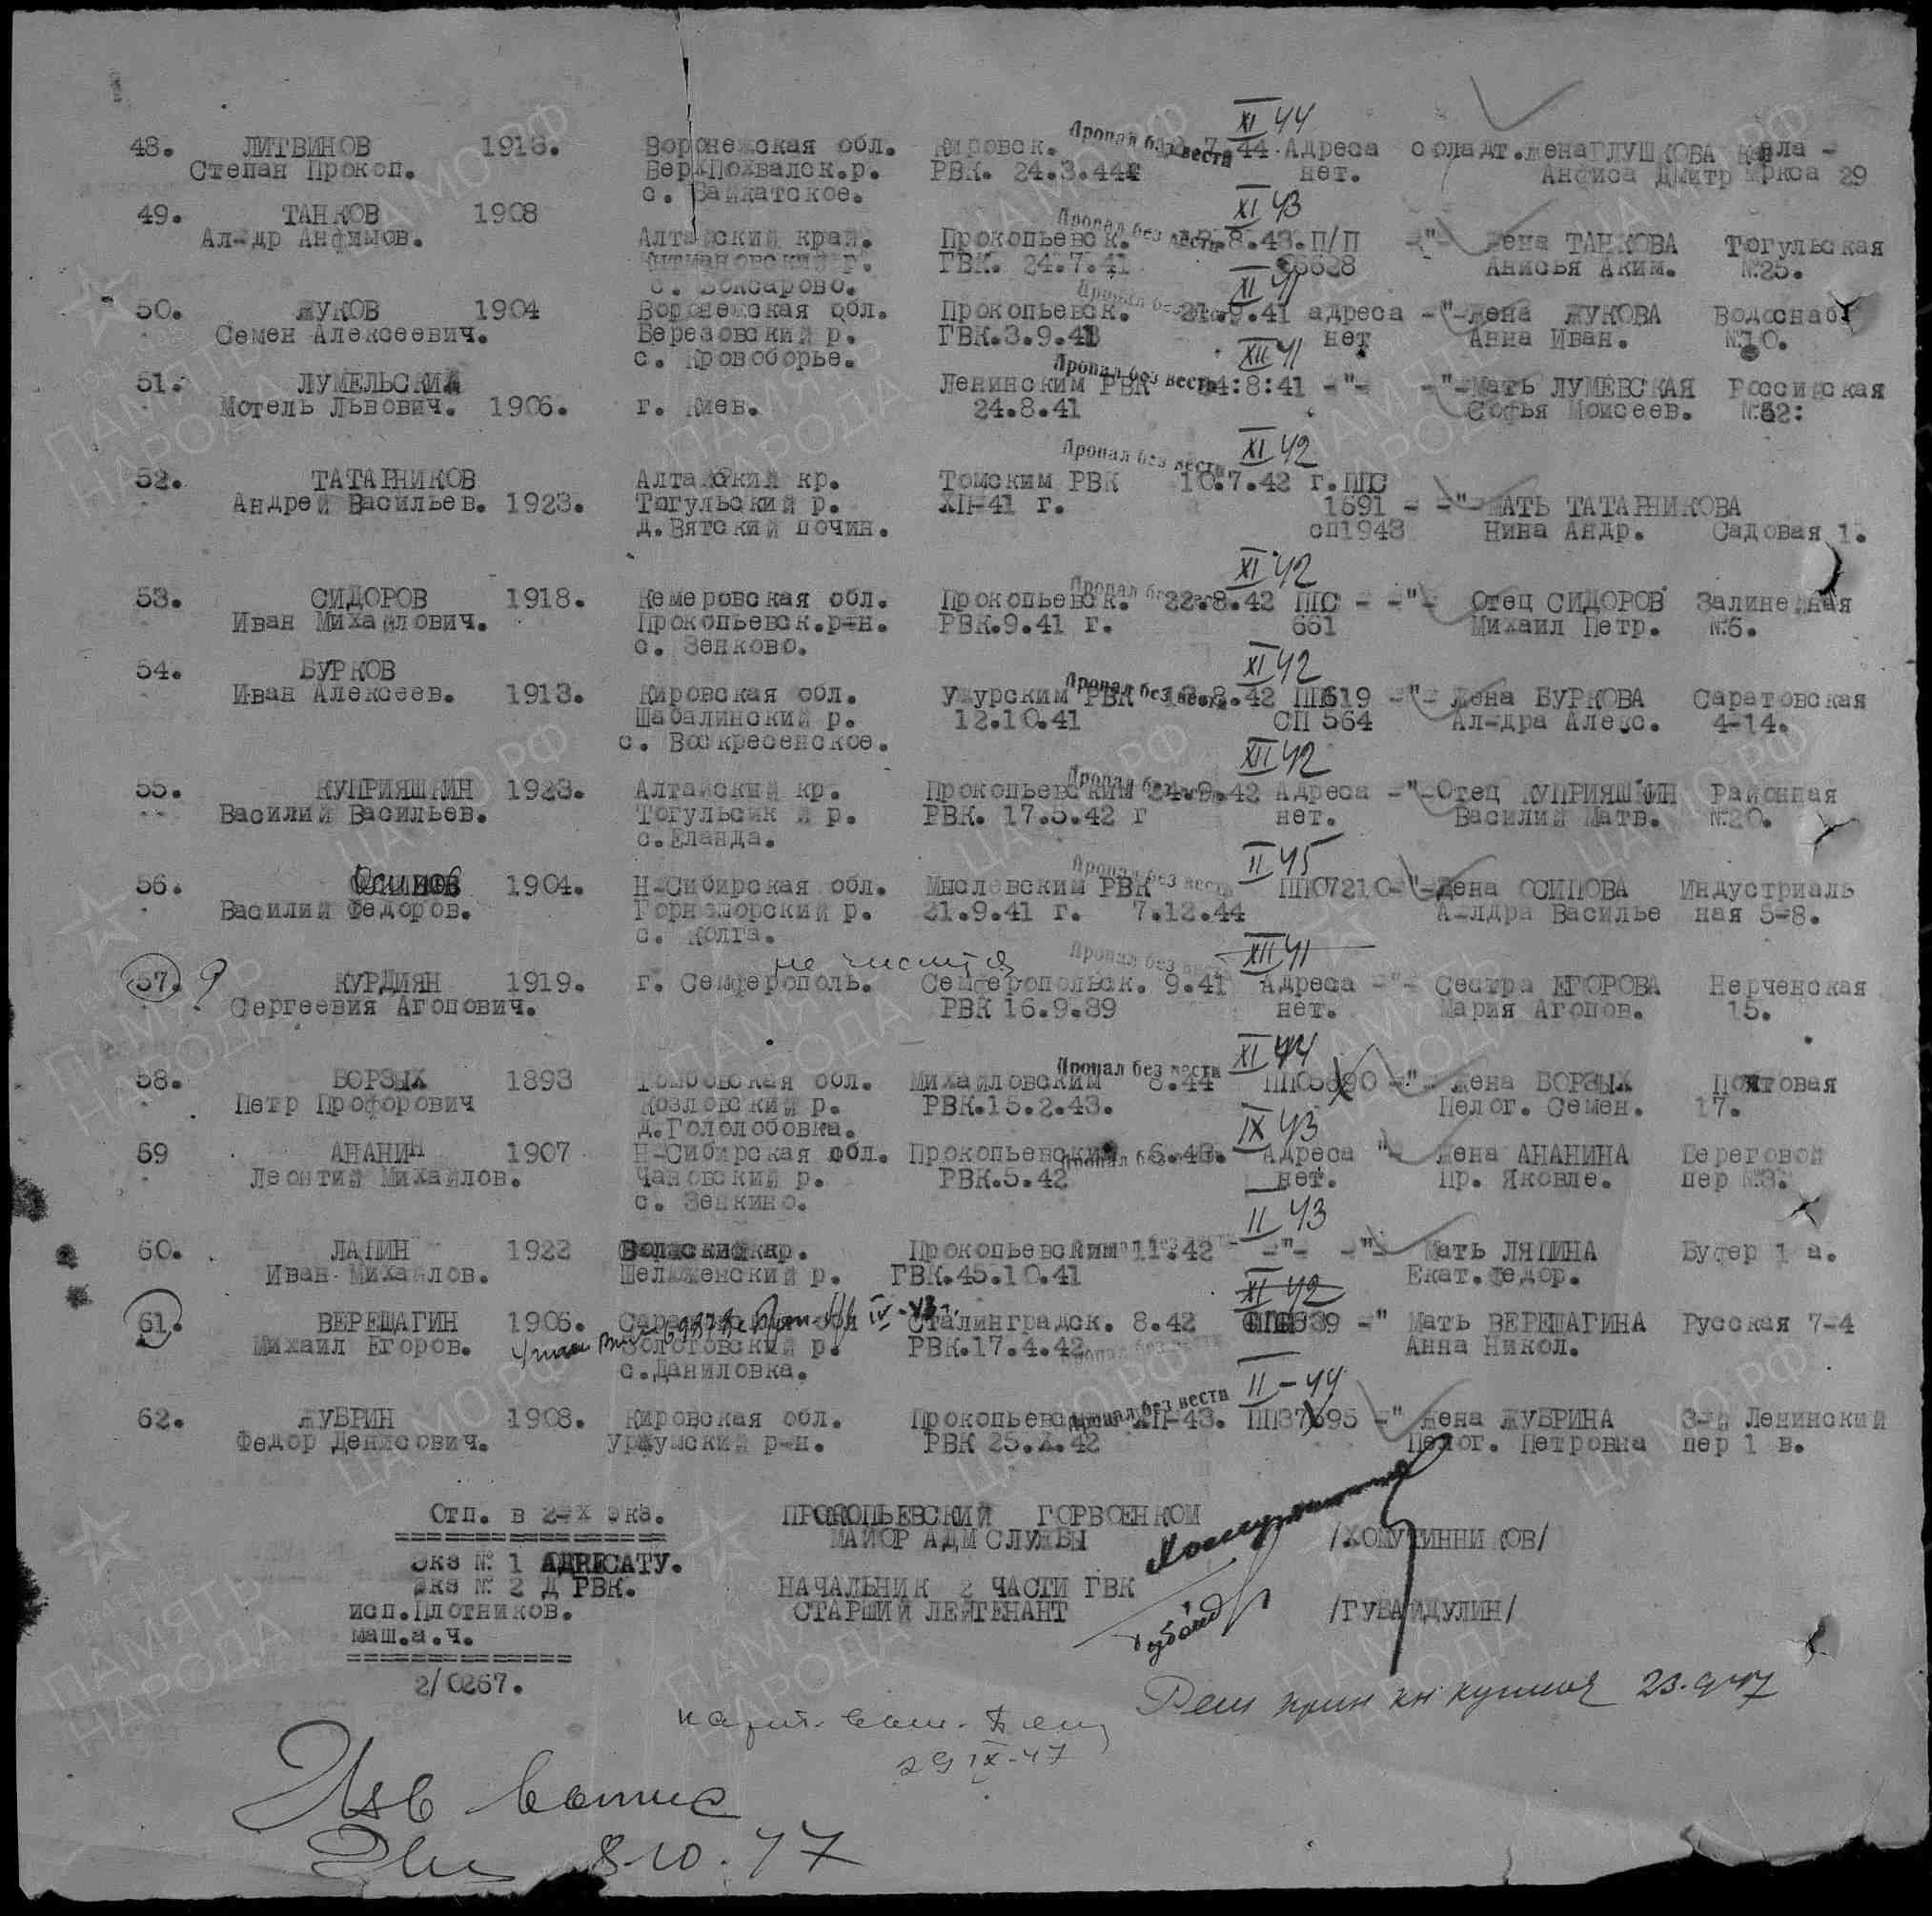 XI 44
48. ЛИТВИНОВ 1918. Воронежская обл. Кировск. Пропал без вести 7.44 Адреса солдт. жена ГЛУШКОВА
Степан Прокоп. Верх Похвалск.р. РВК. 24.3.44г нет. Анфиса Дмитр 29
с.
XI 43
49. ТАНКОВ 1908 Алтайский край. Прокопьевск. Пропал без вести 8.43. П/П -"- жена ТАНКОВА Тогульская
Ал-др Анфимов. р. ГВК. 24.7.41 Анисья Аким. №25.
с.
XI 41
50. ЖУКОВ 1904 Воронежская обл. Прокопьевск. Пропал без 21.9.41 адреса -"- жена ЖУКОВА Водоснаб
Семен Алексеевич. Березовский р. ГВК.3.9.41 нет Анна Иван. №10.
с. Кровоборье.
XII 41
51. ЛУМЕЛЬСКИЙ Ленинским РВК Пропал без вести :8:41 -"- -"- Мать ЛУМЕВСКАЯ Российская
Мотель Львович. 1906. г. Киев. 24.8.41 Софья Моисеев.
XI 42
52. ТАТАРНИКОВ Алтайский кр. Томским РВК Пропал без вести 10.7.42 г. ППС
Андрей Васильев. 1923. Тогульский р. XII-41 г. 1591 - -"- МАТЬ ТАТАРНИКОВА
д.Вятский почин. сп1943 Нина Андр. Садовая 1.
XI 42
53. СИДОРОВ 1918. Кемеровская обл. Прокопьевск. Пропал без 22.8.42 ППС - -"- Отец СИДОРОВ Залинейная
Иван Михайлович. Прокопьевск.р-н. РВК.9.41 г. 661 Михаил Петр. №6.
с. Зенково.
XI 42
54. БУРКОВ
Иван Алексеев. 1913. Кировская обл. Ужурским РВК Пропал без вести 8.42 ПП619 -"- жена БУРКОВА Саратовская
Шабалинский р. 12.10.41 СП 564 Ал-дра Алекс. 4-14.
с. Воскресенское.
XII 42
55. КУПРИЯШКИН 1923. Алтайский кр. Прокопьевским Пропал без 24.9.42 Адреса -"- Отец КУПРИЯШКИН Районная
Василий Васильев. Тогульсик й р. РВК. 17.5.42 г нет. Василий Матв. №20.
с.Еланда.
II 45
56. Осипов 1904. Н-Сибирская обл. Мысlевским РВК Пропал без вести ПП07210-"- жена ОСИПОВА Индустриаль
Василий Федоров. Горношорский р. 21.9.41 г. 7.12.44 А-лдра Василье ная 5-8.
с. Колга.
не числится XII 41
57. КУРДИЯН 1919. г. Семферополь. Семферопольск. Пропал без вести 9.41 Адреса -"- Сестра ЕГОРОВА Нерченская
Сергеевия Агопович. РВК 16.9.39 нет. Мария Агопов. 15.
XI 44
58. БОРЗЫХ 1893 Томбовская обл. Михайловским Пропал без вести 8.44 -"- жена БОРЗЫХ Почтовая
Петр Профорович Козловский р. РВК.15.2.43. Пелог. Семен. 17.
д.Гололобовка.
IX 43
59 АНАНИН 1907 Н-Сибирская обл. Прокопьевский Пропал без 6.43. Адреса "- жена АНАНИНА Береговой
Леонтий Михайлов. Чановский р. РВК.5.42 нет. Пр. Яковле. пер №3.
с. Зенкино.
II 43
60. ЛАПИН 1922 кр. Прокопьевским 11.42 -"- -"- Мать ЛЯПИНА Буфер 1 а.
Иван Михайлов. р. ГВК.45.10.41 Екат. Федор.
XI 42
61. ВЕРЕЩАГИН 1906. обл Сталинградск. 8.42 -" Мать ВЕРЕЩАГИНА Русская 7-4
Михаил Егоров. Золотовский р. РВК.17.4.42 Пропал без вести Анна Никол.
с.Даниловка.
II-44
62. ЖУБРИН 1908. Кировская обл. Прокопьевск Пропал без вести XII-43. ПП37695 -" жена ЖУБРИНА 3-й Ленинский
Федор Денисович. Уржумский р-н. РВК 25.X.42 Пелог. Петровна пер 1 в.
Отп. в 2-х экз. ПРОКОПЬЕВСКИЙ ГОРВОЕНКОМ
МАЙОР АДМ СЛУЖБЫ /ХОМУТИННИКОВ/
Экз № 1 АДРЕСАТУ.
Экз № 2 Д РВК. НАЧАЛЬНИК 2 ЧАСТИ ГВК
исп.Плотников. СТАРШИЙ ЛЕЙТЕНАНТ /ГУБАЙДУЛИН/
маш.а.ч.
2/0267.
23.9.47
29 IX-47
Изв
8.10.47
ПАМЯТЬ НАРОДА
ЦАМО РФ